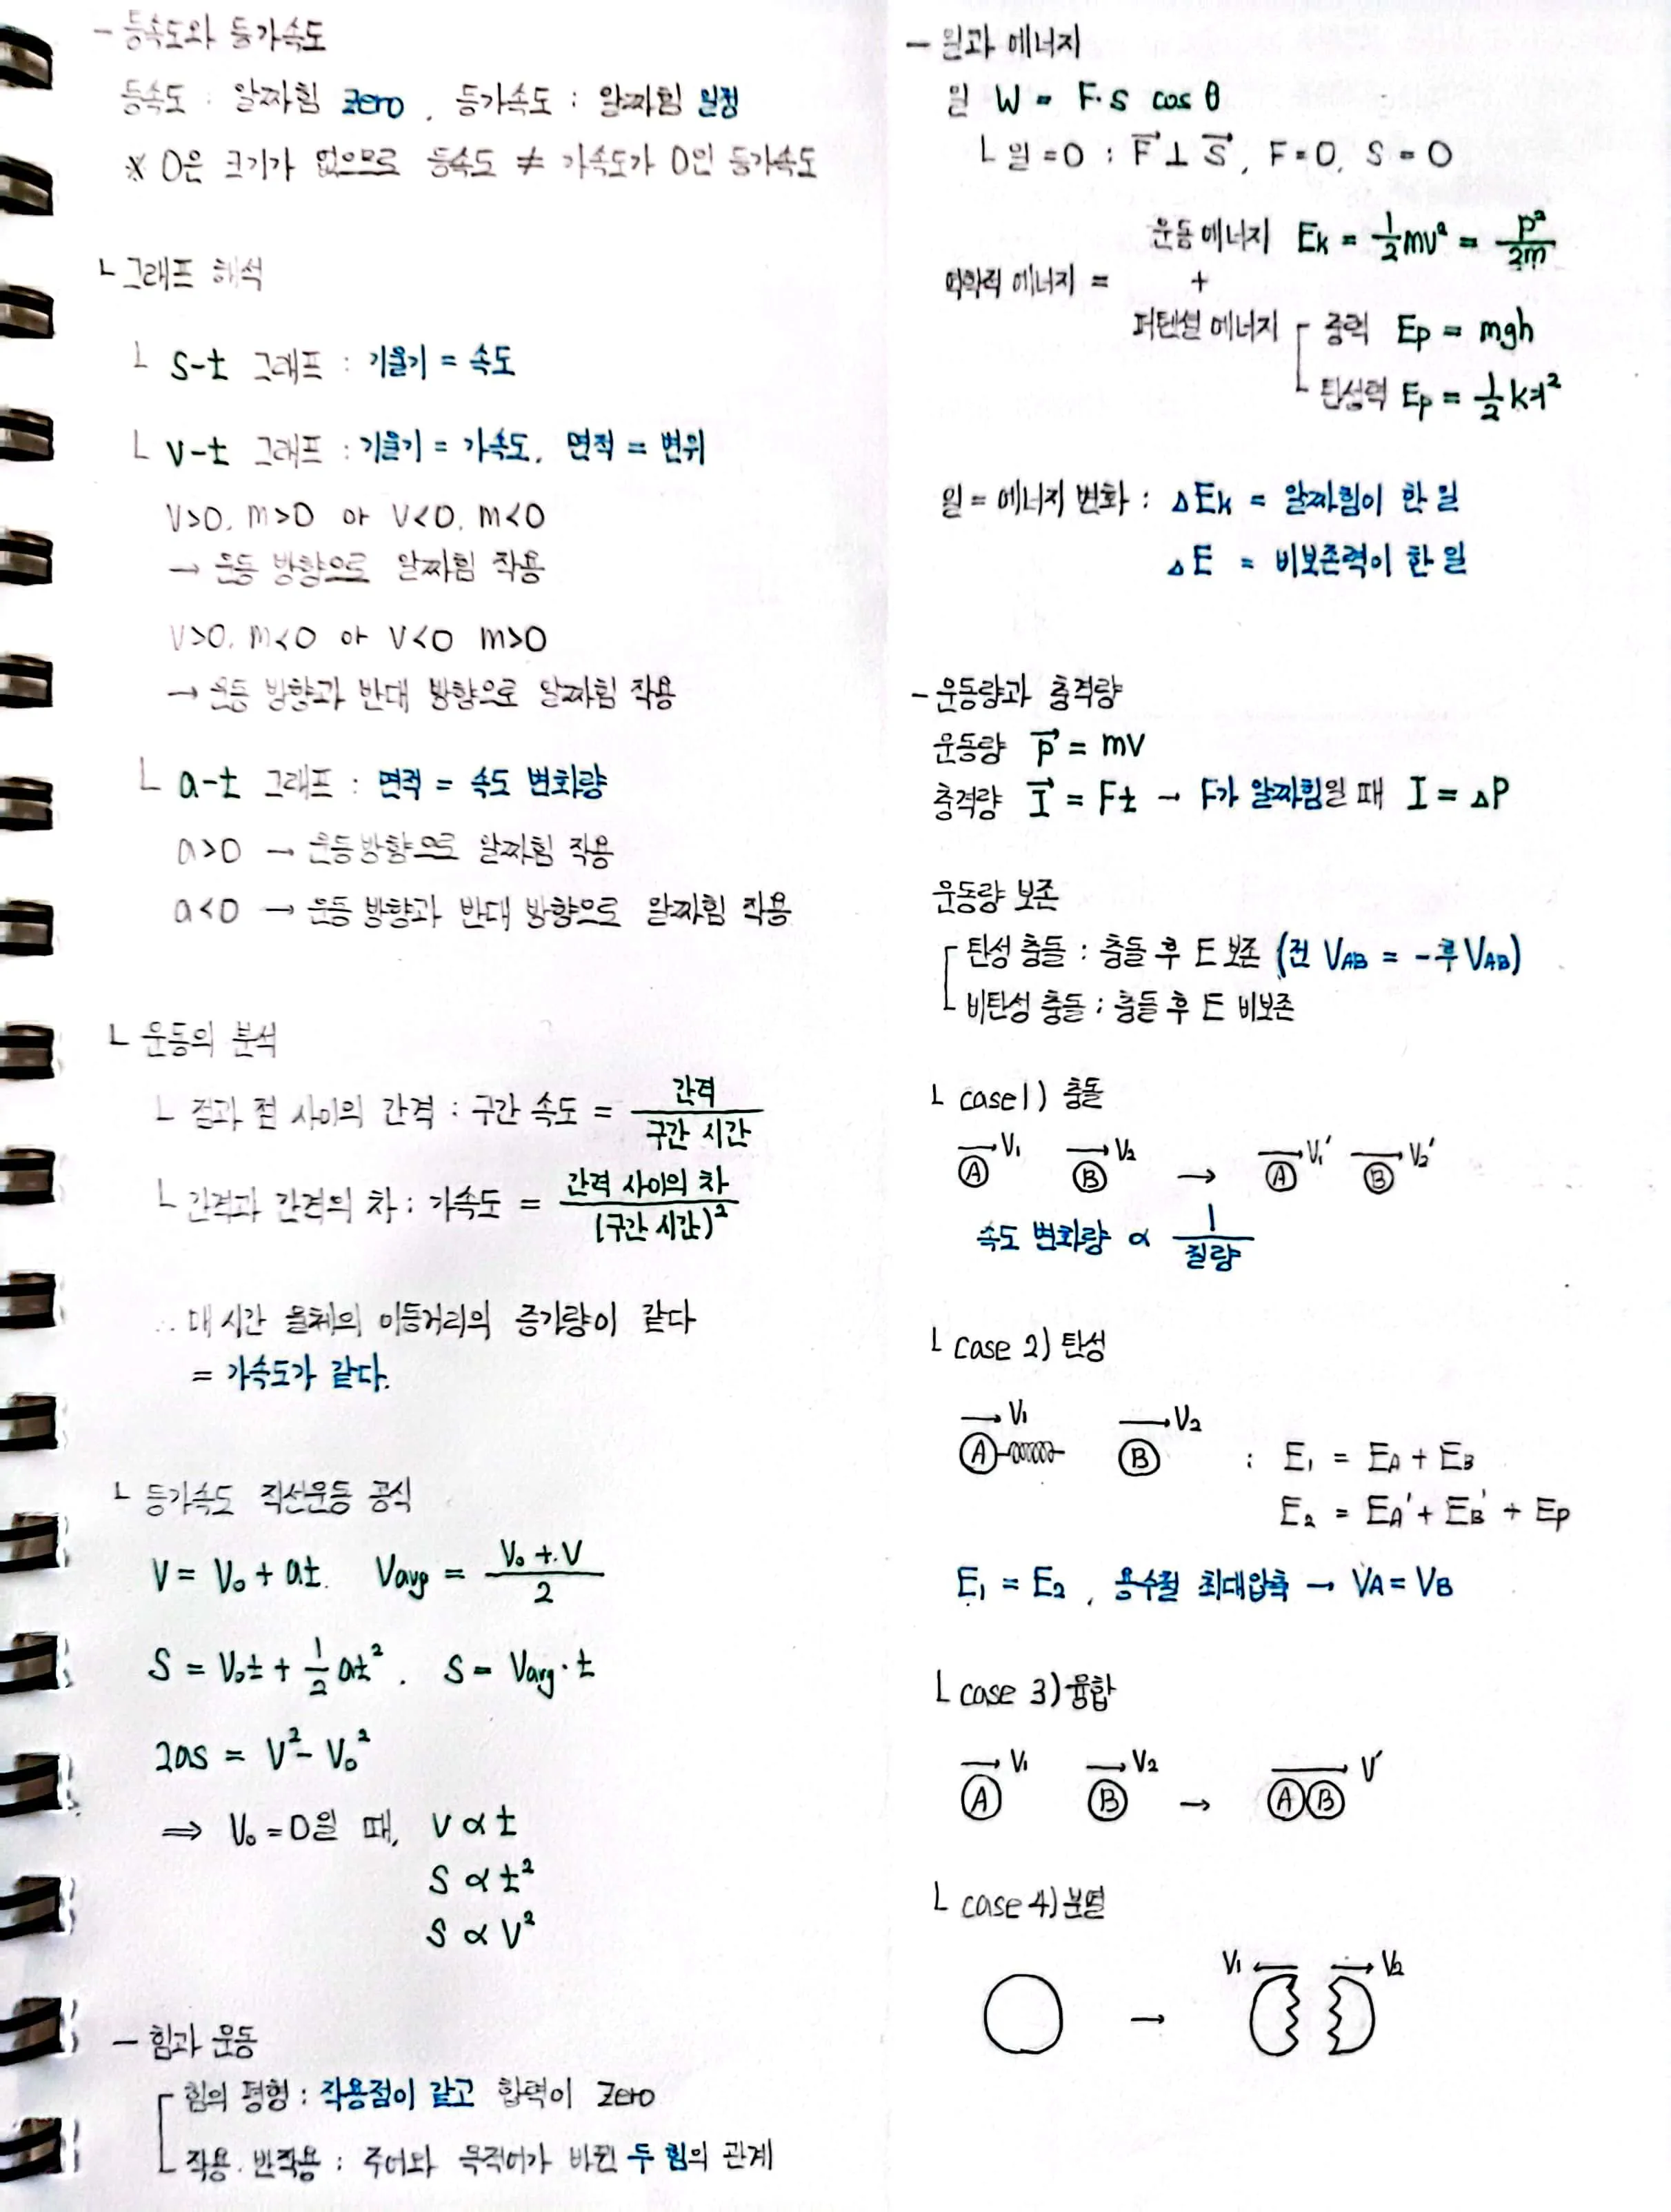 - 등속도와 등가속도
등속도 : 알짜힘 zero, 등가속도 : 알짜힘 일정
※ 0은 크기가 없으므로 등속도 ≠ 가속도가 0인 등가속도
ㄴ 그래프 해석
ㄴ s-t 그래프 : 기울기 = 속도
ㄴ v-t 그래프 : 기울기 = 가속도, 면적 = 변위
V>0, m>0 or V<0, m<0
→ 운동 방향으로 알짜힘 작용
V>0, m<0 or V<0 m>0
→ 운동 방향과 반대 방향으로 알짜힘 작용
ㄴ a-t 그래프 : 면적 = 속도 변화량
a>0 → 운동 방향으로 알짜힘 작용
a<0 → 운동 방향과 반대 방향으로 알짜힘 작용
ㄴ 운동의 분석
ㄴ 점과 점 사이의 간격 : 구간 속도 = 간격 / 구간 시간
ㄴ 간격과 간격의 차 : 가속도 = 간격 사이의 차 / (구간 시간)²
∴ 매 시간 물체의 이동거리의 증가량이 같다
= 가속도가 같다.
ㄴ 등가속도 직선운동 공식
V = V₀ + at. Vavg = (V₀ + V) / 2
S = V₀t + ½at². S = Vavg·t
2as = V² - V₀²
⇒ V₀ = 0일 때, V ∝ t
S ∝ t²
S ∝ V²
- 힘과 운동
힘의 평형 : 작용점이 같고 합력이 zero
작용·반작용 : 주어와 목적어가 바뀐 두 힘의 관계
- 일과 에너지
일 W = F·S cos θ
ㄴ 일 = 0 : F⃗ ⊥ S⃗, F = 0, S = 0
운동 에너지 Ek = ½mv² = p²/2m
역학적 에너지 = +
퍼텐셜 에너지 중력 Ep = mgh
탄성력 Ep = ½kx²
일 = 에너지 변화 : △Ek = 알짜힘이 한 일
△E = 비보존력이 한 일
- 운동량과 충격량
운동량 p⃗ = mv
충격량 I⃗ = Ft → F가 알짜힘일 때 I = △P
운동량 보존
탄성 충돌 : 충돌 후 E 보존 (전 VAB = -후 VAB)
비탄성 충돌 : 충돌 후 E 비보존
ㄴ case 1) 충돌
V₁ V₂ V₁' V₂'
A B → A B
속도 변화량 ∝ 1 / 질량
ㄴ case 2) 탄성
V₁ V₂
A B : E₁ = EA + EB
E₂ = EA' + EB' + Ep
E₁ = E₂, 용수철 최대압축 → VA = VB
ㄴ case 3) 융합
V₁ V₂ V'
A B → A B
ㄴ case 4) 분열
V₁ V₂
→